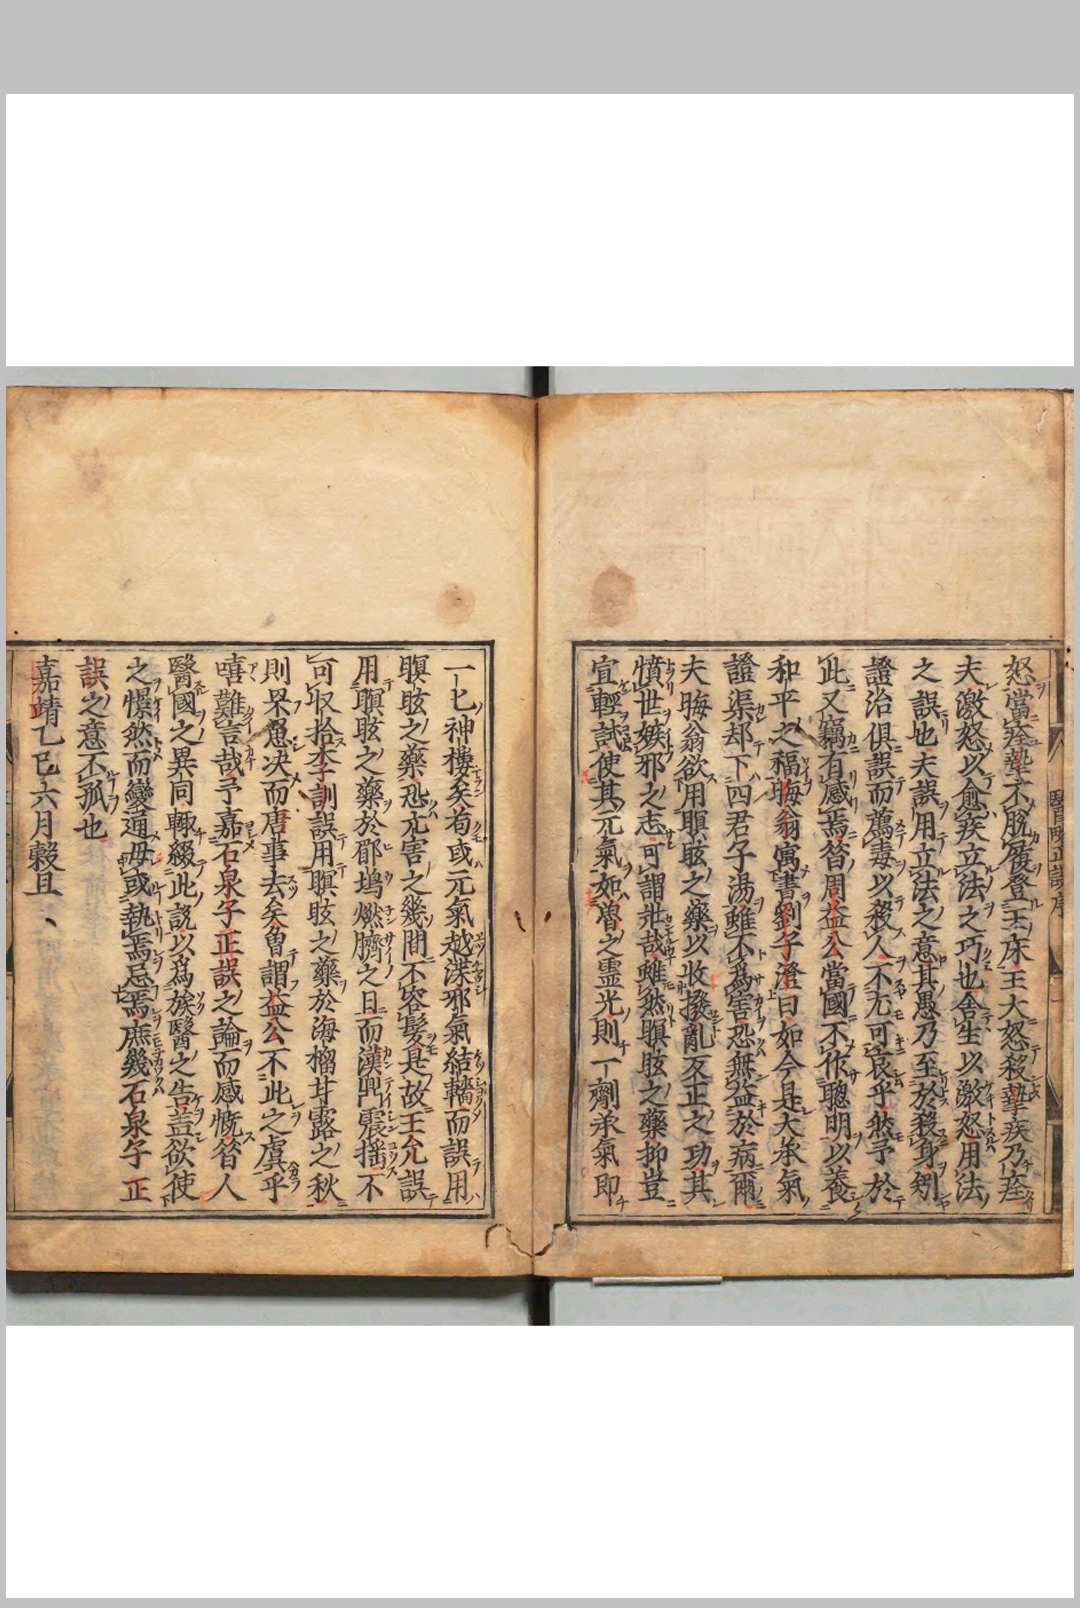 怒當痊摯不脫屨登王床王大怒殺摯疾乃痊
夫激怒以愈疾立法之巧也舍生以激怒用法
之誤也夫誤用立法之意其愚乃至於殺身矧
證治俱誤而薦毒以殺人不尤可哀乎然予於
此又竊有感焉昔周益公當國不作聰明以養
和平之福晦翁寓書劉子澄曰如今是大承氣
證渠却下四君子湯雖不為害恐無益於病爾
夫晦翁欲用瞑眩之藥以收撥亂反正之功其
憤世嫉邪之志可謂壯哉雖然瞑眩之藥抑豈
宜輕試使其元氣如魯之靈光則一劑承氣即
一匕神樓矣苟或元氣越渫邪氣結轖而誤用
瞑眩之藥恐亢害之幾間不容髮是故王允誤
用瞑眩之藥於郿塢燃臍之日而漢鼎震揺不
可収拾李訓誤用瞑眩之藥於海榴甘露之秋
則果愈决而唐事去矣曾謂益公不此之虞乎
嘻難言哉予嘉石泉子正誤之論而感慨昔人
醫國之異同輙綴此說以為族醫之告豈欲使
之懍然而變通毋或執焉忌焉庶幾石泉子正
誤之意不孤也
嘉靖乙巳六月穀旦